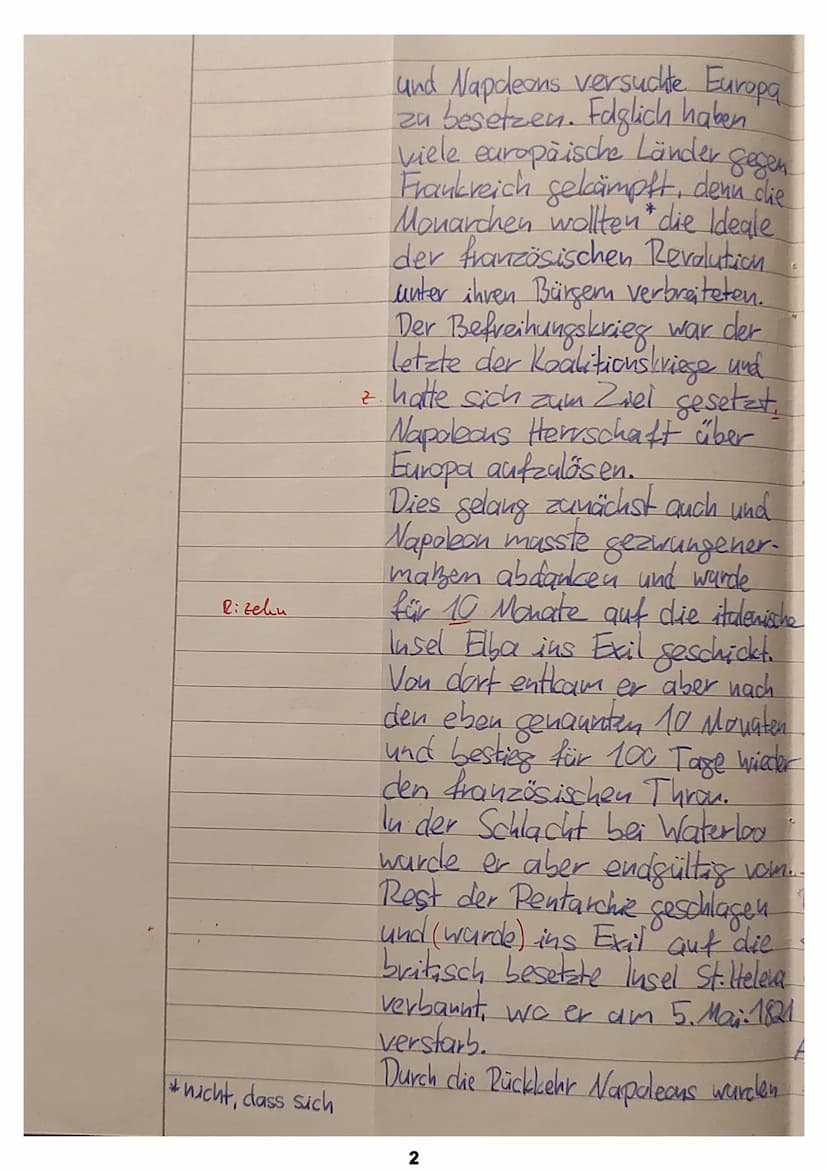 und Napoleons versuchte Europa
zu besetzen. Folglich haben
viele europäische Länder gegen
Frankreich gekämpft, denn die
Monarchen wollten* die Ideale
der französischen Revolution
unter ihren Bürgern verbreiteten.
Der Befreihungskrieg war der
letzte der Koalitionskriege und
z. hatte sich zum Ziel gesetzt,
Napoleons Herrschaft über
Europa aufzulösen.
Dies gelang zunächst auch und
Napoleon musste gezwungener-
maßen abdanken und wurde
R: zehn für 10 Monate auf die italenische
Insel Elba ins Exil geschickt.
Von dort entkam er aber nach
den eben genannten 10 Monaten
und bestieg für 100 Tage wieder
den französischen Thron.
In der Schlacht bei Waterloo
wurde er aber endgültig vom
Rest der Pentarchie geschlagen
und (wurde) ins Exil auf die
britisch besetzte Insel St. Helena
verbannt, wo er am 5. Mai 1821
verstarb.
Durch die Rückkehr Napoleons wurden
*nicht, dass sich
2